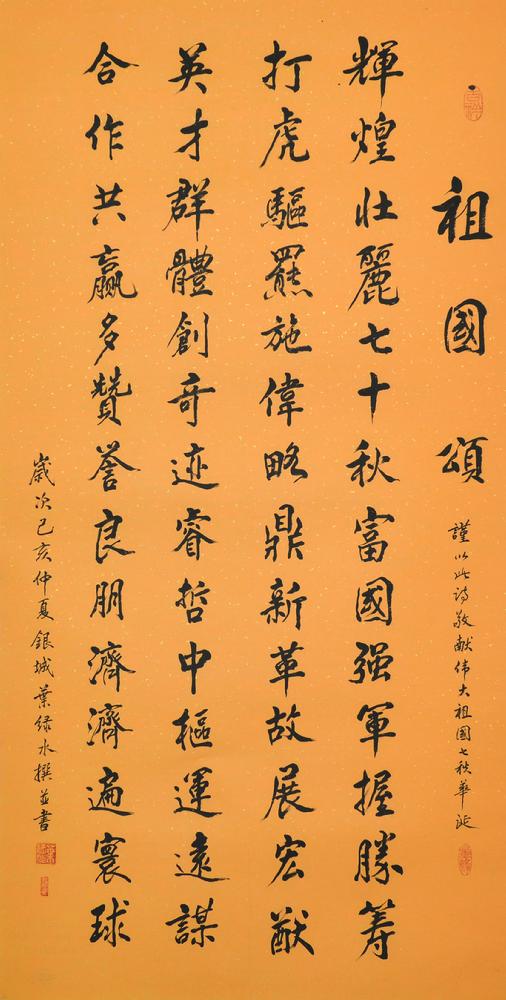 祖國頌
謹以此詩敬獻伟大祖國七秩華诞
輝煌壮麗七十秋富國强軍握勝筹
打虎驅羆施偉略鼎新革故展宏猷
英才群體創奇迹睿哲中樞運遠謀
合作共赢多贊誉良朋濟濟遍寰球
歲次己亥仲夏銀城葉绿水撰並書